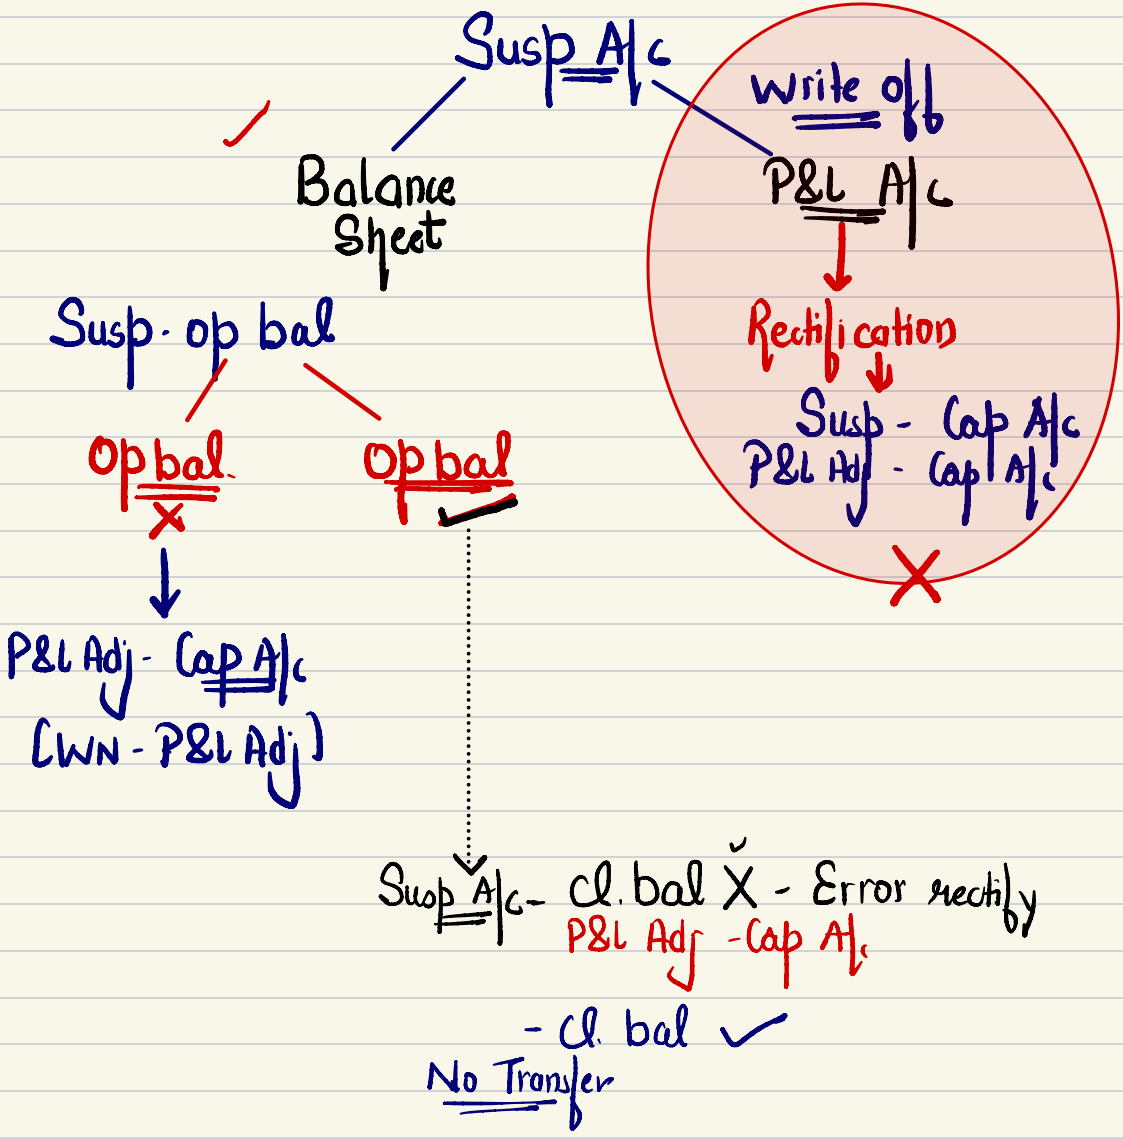 Susp A/c
Write off
Balance
Sheet
P&L A/c
Rectification
Susp - Cap A/c
P&L Adj - Cap A/c
Susp - op bal
Op bal.
X
Op bal
X
P&L Adj - Cap A/c
[WN - P&L Adj]
Susp A/c - Cl. bal X - Error rectify
P&L Adj - Cap A/c
- Cl. bal ✓
No Transfer